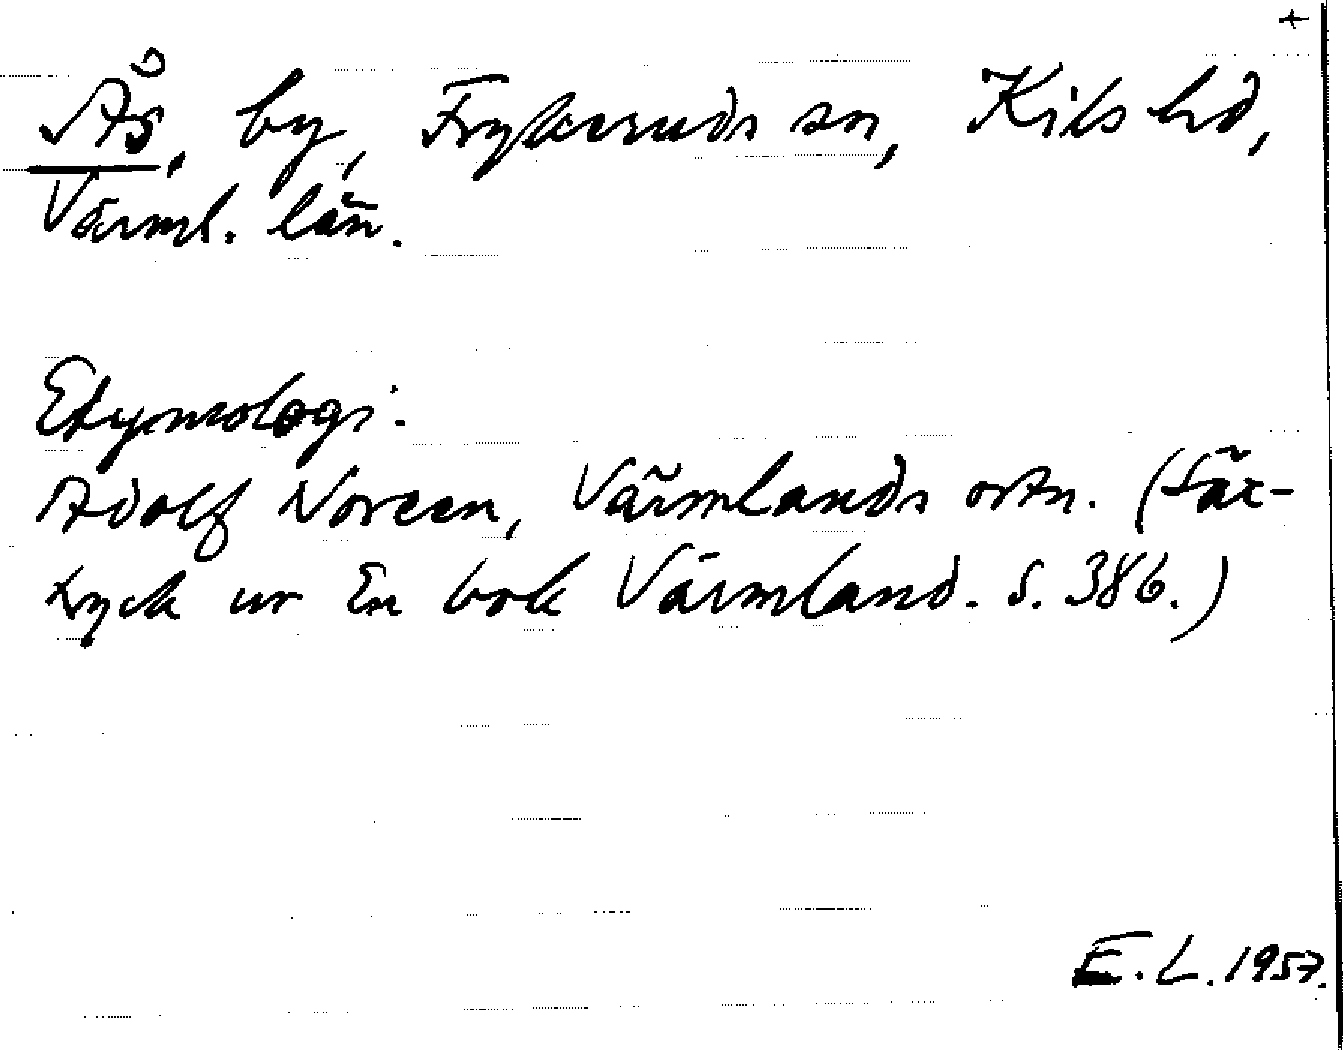 +
Ås, by, Frykeruds sn, Kils hd,
Värml. län.
Etymologi.
Adolf Noreen, Värmlands ortn. (Sär-
tryck ur En bok Värmland. S. 386.)
E. L. 1957.